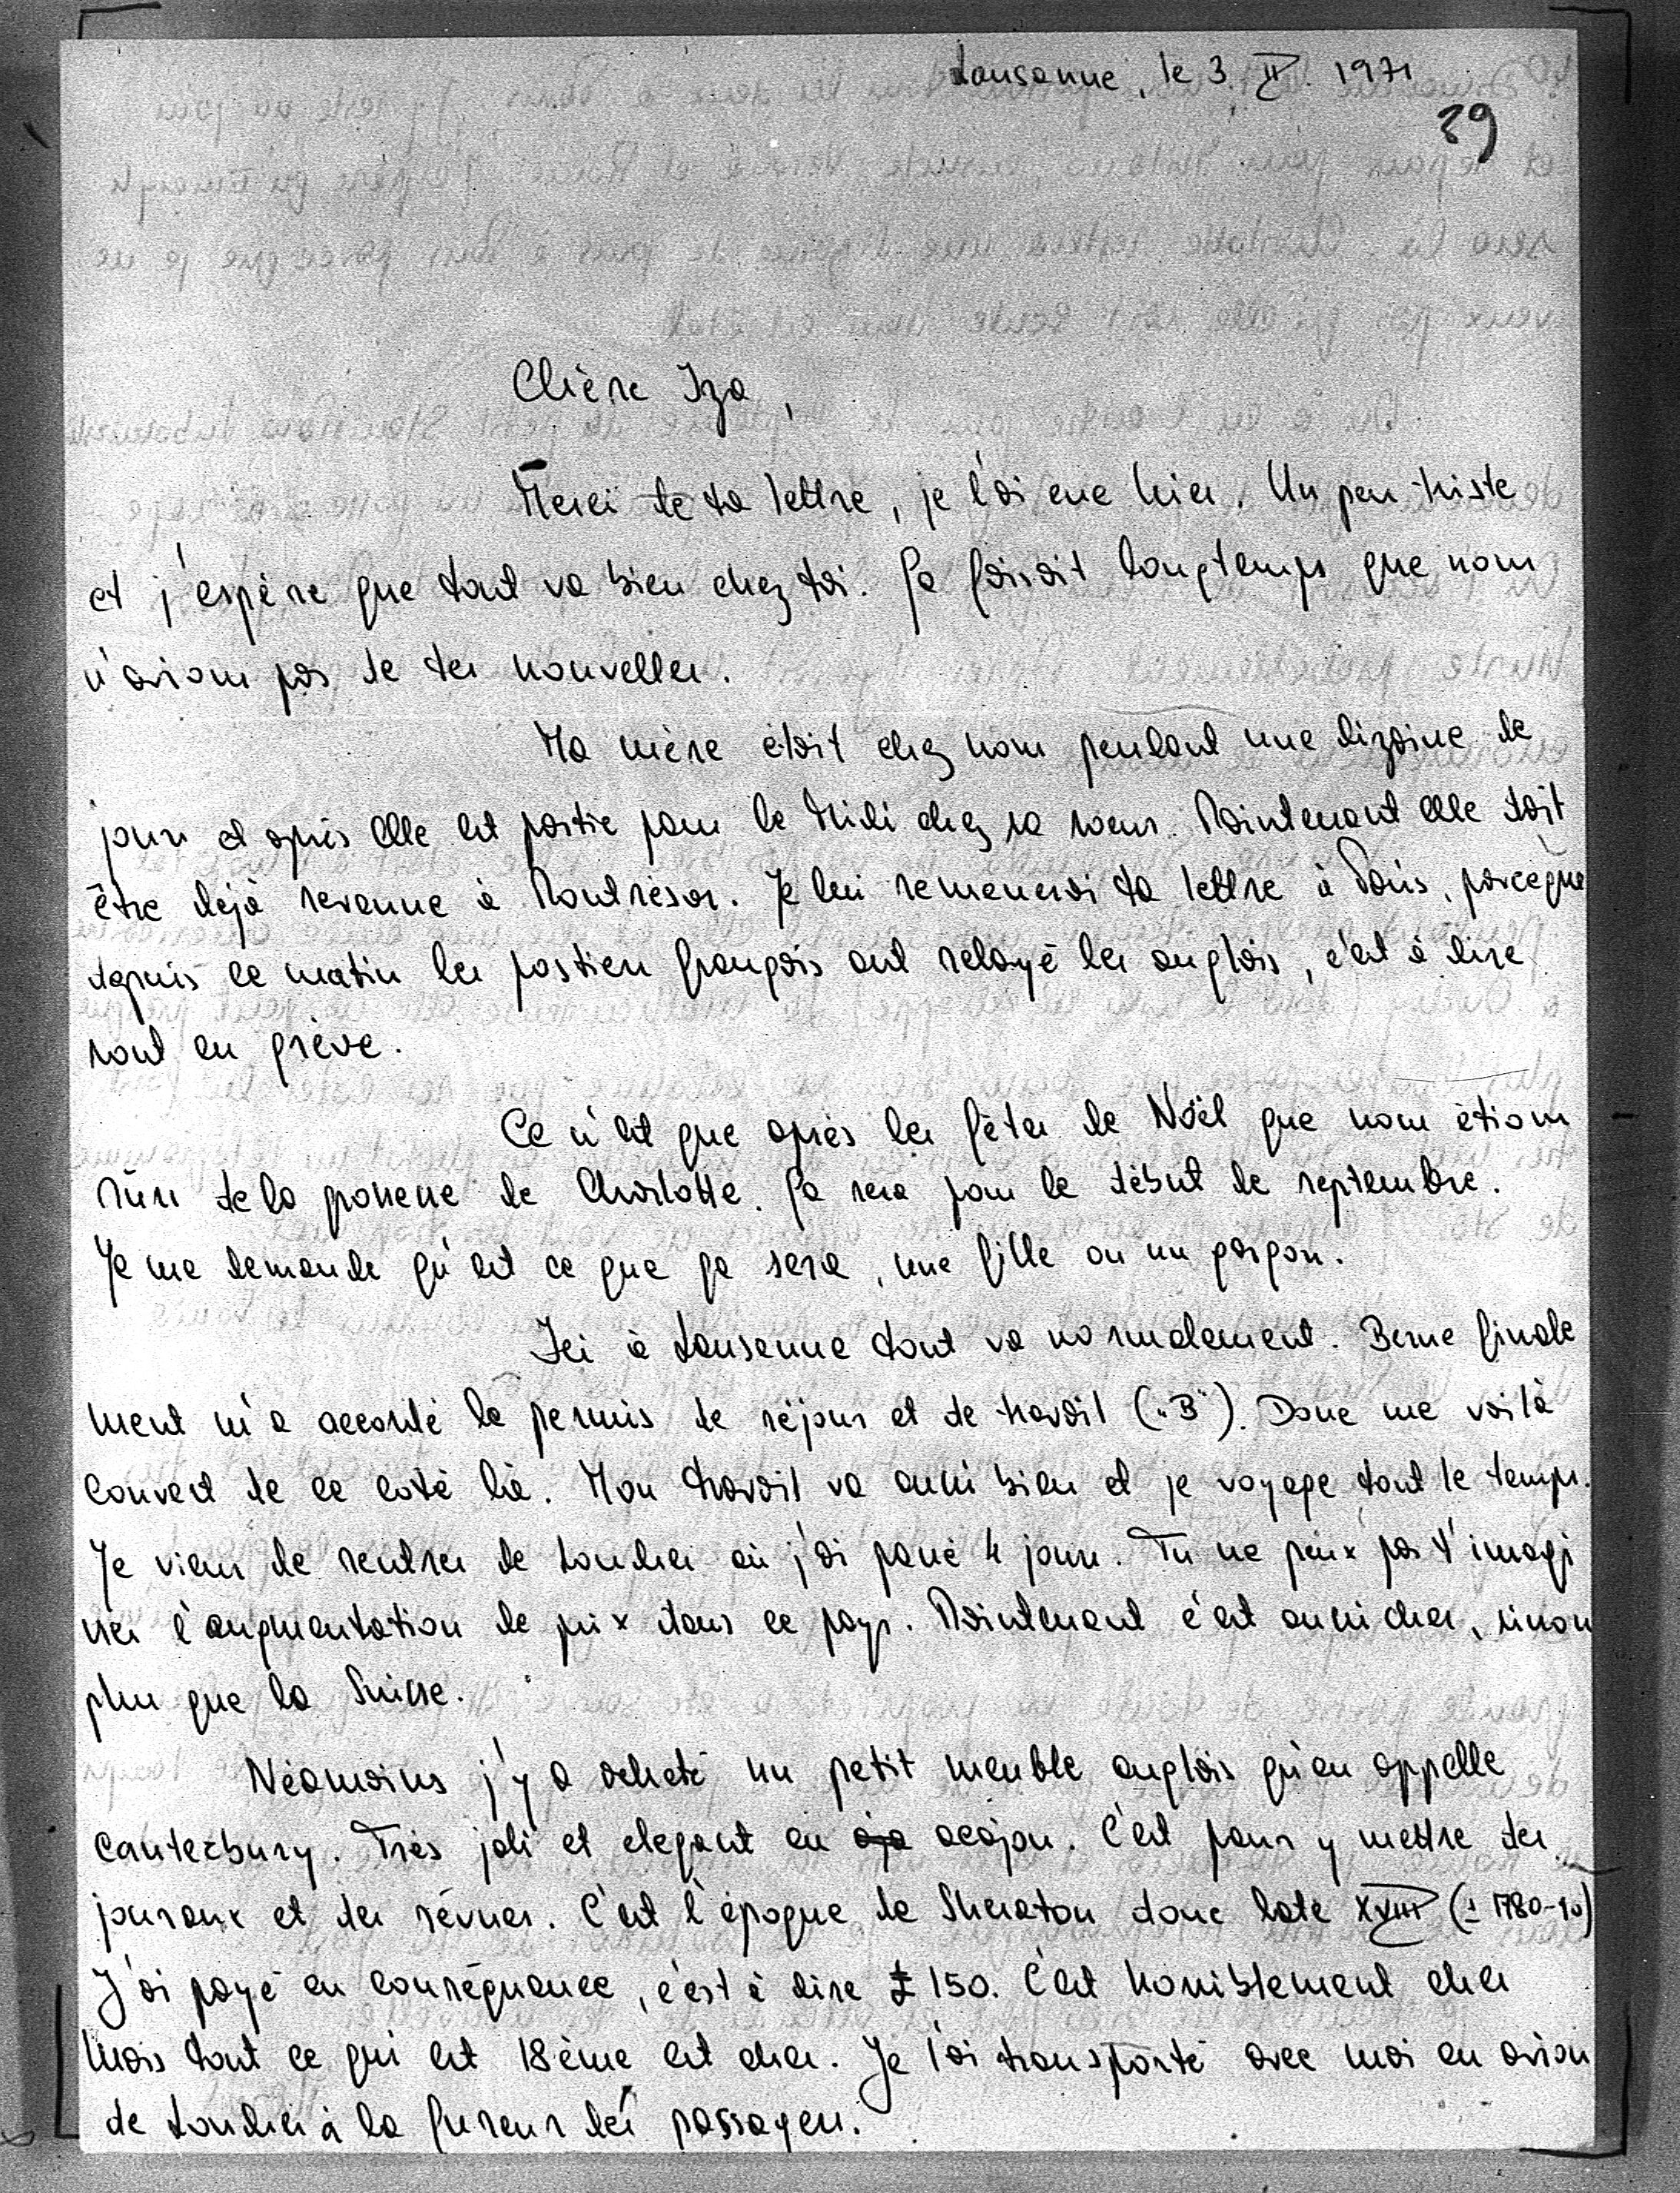 Lausanne, le 3. II. 1971
39
Chère Iza,
Merci de ta lettre, je l'ai eue hier. Un peu triste
et j'espère que tout va bien chez toi. Ça faisait longtemps que nous
n'avions pas de tes nouvelles.
Ma mère était chez nous pendant une dizaine de
jours et après elle est partie pour le Midi chez sa soeur. Maintenant elle doit
être déjà revenue à Montrésor. Je lui remenerai ta lettre à Paris, parceque
depuis ce matin les postiers français ont relayé les anglais, c'est à dire
sont en grève.
Ce n'est que après les fêtes de Noël que nous étions
sûrs de la grossesse de Charlotte. Ça sera pour le début de septembre.
Je me demande qu'est ce que ça sera, une fille ou un garçon.
Ici à Lausanne tout va normalement. Berne finale
ment m'a accordé le permis de séjour et de travail („B"). Donc me voilà
couvert de ce coté là. Mon travail va aussi bien et je voyage tout le temps.
Je viens de rentrer de Londres où j'ai passé 4 jours. Tu ne peux pas t'imagi
ner l'augmentation de prix dans ce pays. Maintenant c'est aussi cher, sinon
plus que la Suisse.
Néamoins j'y a acheté un petit meuble anglais qu'on appelle
Canterbury. Très joli et elegant en aja acajou. C'est pour y mettre des
jouraux et des révues. C'est l'époque de Sheraton donc late XVIII (± 1780-90)
J'ai payé en conséquence, c'est à dire £ 150. C'est horriblement cher
mais tout ce qui est 18ème est cher. Je l'ai transporté avec moi en avion
de Londres à la fureur des passagers.